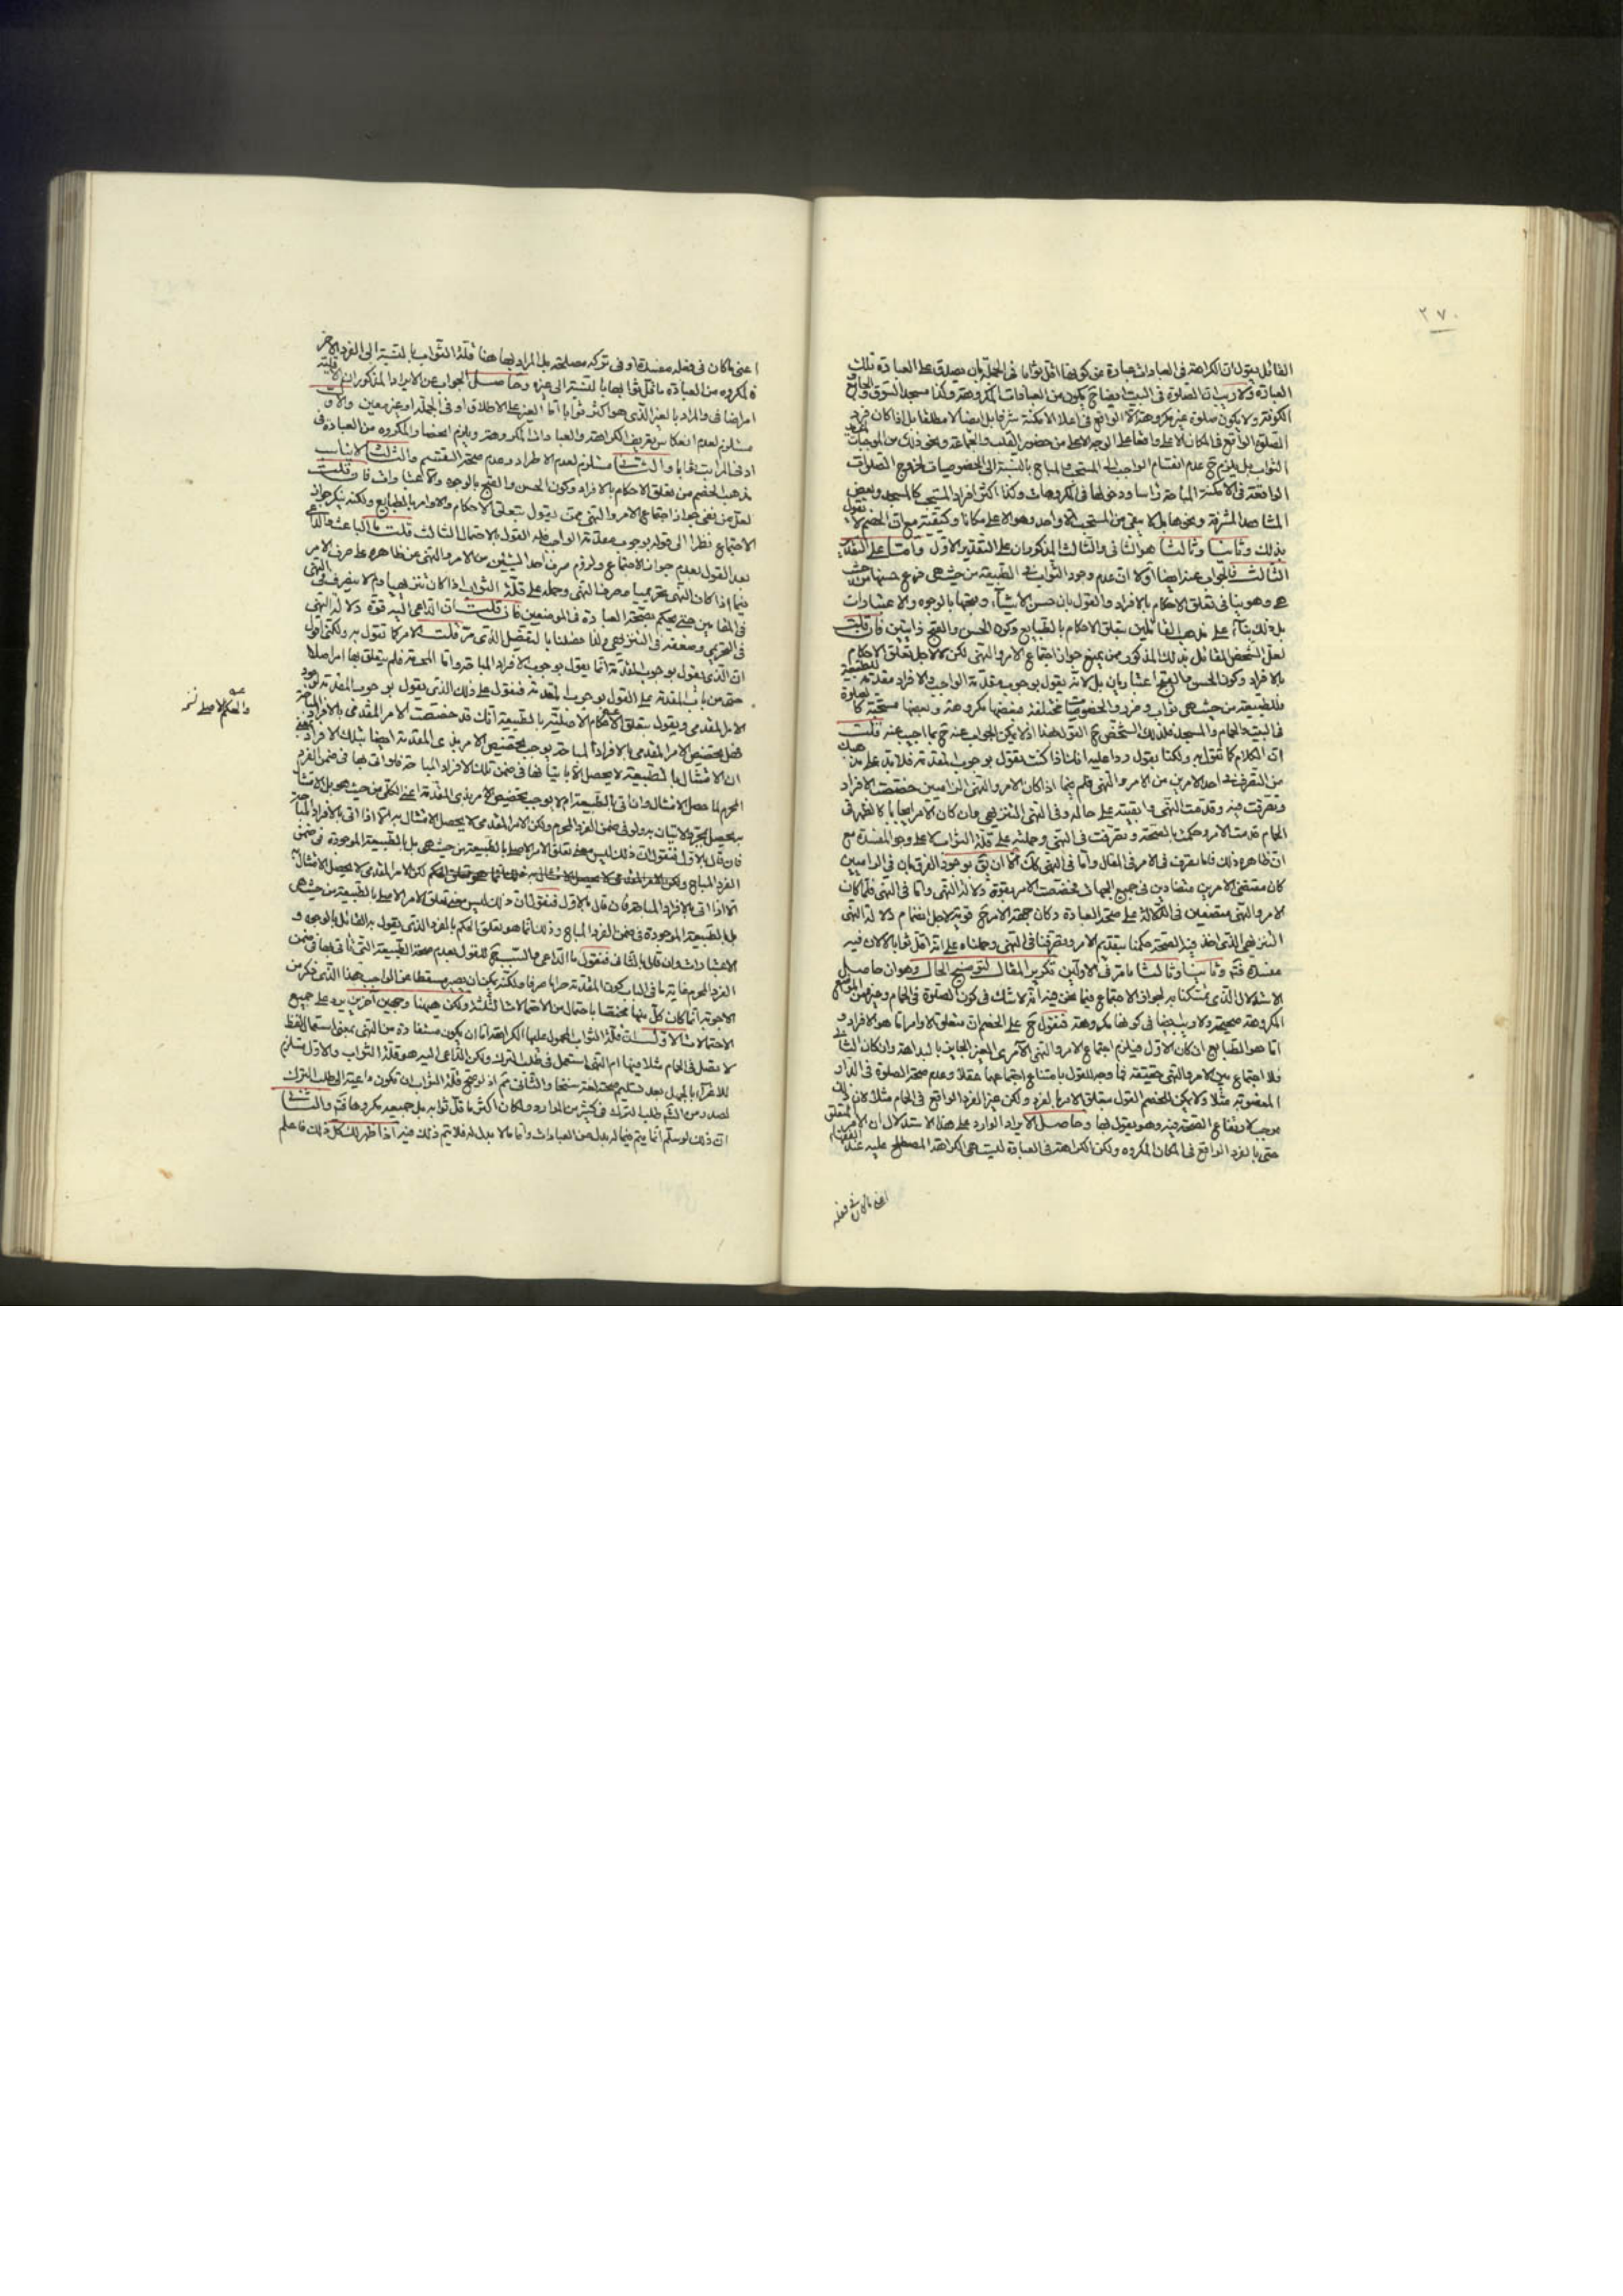 ٢٧٠
القائل بقول ان الكراهة فى العبادات عبادة من كونها اقل ثوابا فى الجملة بان يصدق على العبادة تلك
العبادة ولا ريب ان الصلوة فى البيت ايضا ح يكون من العبادات المكروهة وكذا مسجد السوق والجامع
الكوفة ولا يكون صلوة غير مكروهة الا الواقع فى اعلا الامكنة شرفا بل ايضا لا مطلقا بل اذا كان فرد
الصلوة الواقع فى المكان الاعلى واقعا على الوجه الاعلى من حضور القلب والجماعة ونحو ذلك من الموجبات
الثواب بل يلزم ح عدم انقسام الواجب الى المستحب والمباح بالنسبة الى الخصوصيات لخروج الصلوات
الواقعة فى الامكنة المباحة راسا ودخولها فى المكروهات وكذا اكثر افراد المستحب كالمسجد وبعض
المشاهد المشرفة ونحوها بل لا يبقى من المستحب الا واحد وهو الاعلى مكانا وكيفية مع ان الخصم لا يقول
بذلك وثانيا وثالثا هو الثانى والثالث المذكوران على التقدير الاول واما على التقدير
الثالث فالجواب عنه ايضا اولا ان عدم وجود الثواب فى الطبيعة من حيث هى فرع حسنها من حيث
هى وهو ينافى تعلق الاحكام بالافراد والقول بان حسن الاشياء وقبحها بالوجوه والاعتبارات
بل ذلك بناء على مذهب القائلين بتعلق الاحكام بالطبايع وكون الحسن والقبح ذاتيين فان قلت
لعل الشخص القائل بذلك المذكور ممن يمنع جواز اجتماع الامر والنهى لكن لا لاجل تعلق الاحكام
بالافراد وكون الحسن والقبح اعتباريان بل لانه يقول بوجوب مقدمة الواجب والافراد مقدمة للطبيعة
فللطبيعة من حيث هى ثواب وفرد والخصوصيات مختلفة فبعضها مكروهة وبعضها مستحبة كالصلوة
فى البيت والحمام والمسجد فلذلك الشخص ح القول بهذا اذ لا يمكن الجواب عنه ح بما اجيب عنه قلت
ان الكلام كما تقول به ولكنا نقول ردا عليه انك اذا كنت تقول بوجوب المقدمة فلا بد على مذهبك
من التصرف فى احد الامرين من الامر والنهى فلم فيما اذا كان الامر والنهى الزاميين خصصت الافراد
وتصرفت فيه وقدمت النهى وابقيته على حاله وفى النهى التنزيهى وان كان الامر ايجابا كالظهر فى
الحمام قدمت الامر وحكمت بالصحة وتصرفت فى النهى وحملته على قلة الثواب لا على وجه المفسدة مع
ان ظاهره ذلك فاما يتصرف فى الامر فى المقال واما فى النهى كك الا ان يق بوجود الفرق بان فى الزاميين
كان مقتضى الامرين متضادين فى جميع الجهات فخصصت الامر بقوة دلالة النهى واما فى النهى فلما كان
الامر والنهى متصفين فى الدلالة على صحة العبادة وكان جهة الامر ح قوية لاجل انضمام دلالة النهى
التنزيهى الذى اخذ فيه الصحة حكمنا بتقديم الامر وتصرفنا فى النهى وحملناه على انه اقل ثوابا لا لان فيه
مفسدة فتم وثانيا وثالثا ما مر فى الاولين تكرير المقال لتوضيح الحال وهو ان حاصل
الاستدلال الذى يتمسكنا به لجواز الاجتماع فيما نحن فيه انه لا شك فى كون الصلوة فى الحمام وغيره من المواضع
المكروهة صحيحة ولا ريب ايضا فى كونها مكروهة فنقول ح على الخصم ان متعلق الاوامر اما هو الافراد و
اما هو الطبايع ان كان الاول فيلزم اجتماع الامر والنهى الامرى الغير الجايز بالبداهة وان كان الثانى
فلا اجتماع بين الامر والنهى حقيقة فما وجه للقول بامتناع اجتماعهما عقلا وعدم صحة الصلوة فى الدار
المغصوبة مثلا ولا يمكن للخصم القول بتعلق الامر بالفرد ولكن غير الفرد الواقع فى الحمام مثلا لان ذلك
موجب لارتفاع الصحة فيه وهو يقول بها وحاصل الايراد الوارد على هذا الاستدلال ان الامر متعلق
حتى بالفرد الواقع فى المكان المكروه ولكن الكراهة فى العبادة ليست هى الكراهة المصطلح عليه عند الفقهاء
اعنى ما كان فى فعله
اعنى ما كان فى فعله مفسدة او فى تركه مصلحة بل المراد بها هنا قلة الثواب بالنسبة الى الفرد الاخر
فالمكروه من العبادة ما قل ثوابها بالنسبة الى غيره وحاصل الجواب عن الايراد المذكور ان الاقلية
امر اضافى والمراد بالغير الذى هو اكثر ثوابا اما الغير على الاطلاق او فى الجملة او غير معين والاول
مستلزم لعدم انعكاس تعريف الكراهة والعبادات المكروهة ويلزم انحصار المكروه من العبادة فى
ادنى المراتب ثوابا والثانى مستلزم لعدم الاطراد وعدم صحة التقسيم والثالث لا يناسب
مذهب الخصم من تعلق الاحكام بالافراد وكون الحسن والقبح بالوجوه والاعتبارات فان قلت
لعل من نفى جواز اجتماع الامر والنهى ممن يقول بتعلق الاحكام والاوامر بالطبايع ولكنه ينكر جواز
الاجتماع نظرا الى قوله بوجوب مقدمة الواجب فله القول بالاحتمال الثالث قلت ما الباعث والداعى
بعد القول بعدم جواز الاجتماع ولزوم صرف احد الشيئين من الامر والنهى عن ظاهره على صرف الامر
فيما اذا كان النهى تحريميا وصرف النهى وحمله على قلة الثواب اذا كان تنزيهيا ولم لا يتصرف فى النهى
فى المقامين حتى يحكم بصحة العبادة فى الموضعين فان قلت ان الداعى اليه قوة دلالة النهى
فى التحريمى وضعفه فى التنزيهى ولذا فصلنا بالتفصيل الذى مر قلت الامر كما تقول به ولكنى اقول
ان الذى يقول بوجوب المقدمة انما يقول بوجوب الافراد المباحة واما المحرمة فلم يتعلق بها امر اصلا
حتى من باب المقدمة على القول بوجوب المقدمة فنقول على ذلك الذى يقول بوجوب المقدمة لوجود
الامر المقدمى ويقول بتعلق الاحكام الاصلية بالطبيعة انك قد خصصت الامر المقدمى بالافراد المباحة
فهل تخصيص الامر المقدمى بالافراد المباحة يوجب تخصيص الامر بذى المقدمة ايضا بتلك الافراد يعنى
ان الامتثال بالطبيعة لا يحصل الا باتيانها فى ضمن تلك الافراد المباحة فلو اتى بها فى ضمن الفرد
المحرم لما حصل الامتثال وان اتى بالطبيعة ام لا يوجب تخصيص الامر بذى المقدمة اعنى الكلى من حيث هو بل الامتثال
به يحصل بمجرد الاتيان به ولو فى ضمن الفرد المحرم ولكن الامر المقدمى لا يحصل الامتثال به الا اذا اتى بالافراد المباحة
فان قال بالاول فنقول ان ذلك ليس معنى تعلق الامر الاصلى بالطبيعة من حيث هى بل بالطبيعة الموجودة فى ضمن
الفرد المباح لكن الامر المقدمى لا يحصل الامتثال به
الا اذا اتى بالافراد المباحة فان قال بالاول فنقول ان ذلك ليس معنى تعلق الامر الاصلى بالطبيعة من حيث هى
بل بالطبيعة الموجودة فى ضمن الفرد المباح وذلك انما هو تعلق الحكم بالفرد الذى يقول به القائل بالوجوه و
الاعتبارات وان قال بالثانى فنقول ما الداعى والسبب ح للقول بعدم صحة الطبيعة التى اتى بها فى ضمن
الفرد المحرم غاية ما فى الباب كون المقدمة حراما صرفا ولكنه يمكن ان يصير مسقطا عن الواجب هذا الذى ذكر من
الاجوبة انما كان كل منها مختصا باحتمال من الاحتمالات الثلثة ولكن هيهنا وجهين آخرين يرد على جميع
الاحتمالات الاول ان قلة الثواب المحمول عليها الكراهة اما ان يكون مستفادة من النهى بمعنى استعمال لفظ
لا تصل فى الحمام مثلا فيها ام النهى استعمل فى طلب الترك ولكن الداعى اليه هو قلة الثواب والاول مستلزم
للاغراء بالجهل بعد تسليم صحته لغة سنخا والثانى فتم اذ لو صح قلة الثواب ان تكون داعية الى طلب الترك
لصدر من الشم طلب الترك فى كثير من الموارد ولكان اكثر ما قل ثوابه بل جميعه مكروها فتم والثانى
ان ذلك لو سلم انما يتم فيما له بدل من العبادات واما ما لا بدل له فلا يتم ذلك فيه اذا ظهر لك كل ذلك فاعلم
والحكم الاصلى نسخه